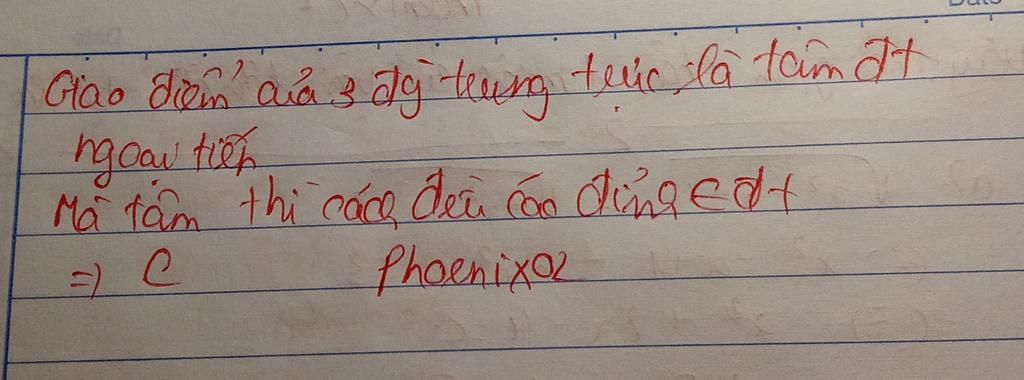 Giao điểm của 3 đg trung trực là tâm đt
ngoại tiếp
Mà tâm thì cách đều các đỉnh ∈ đt
=) C Phoenix02